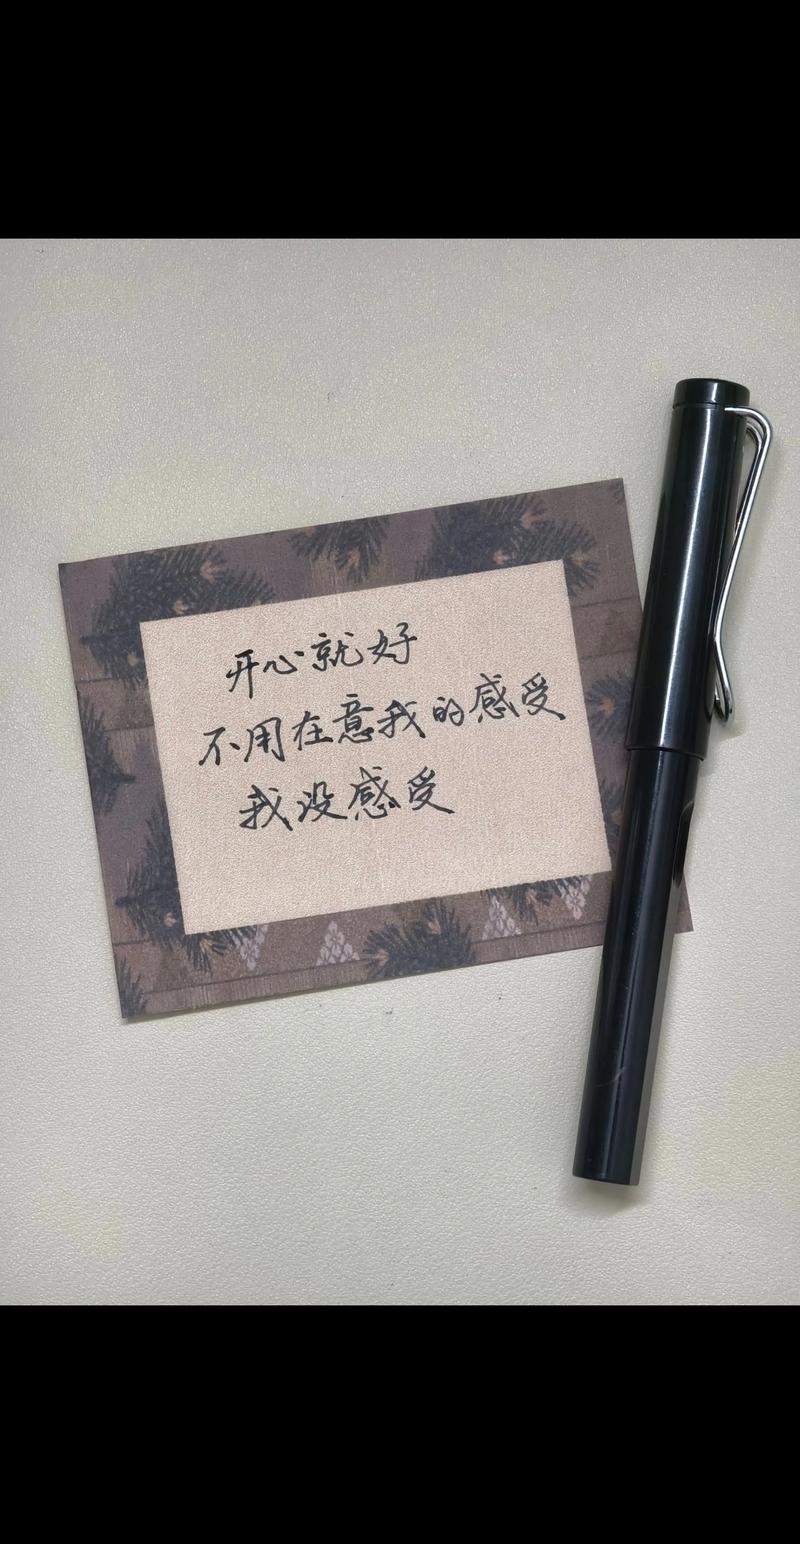 开心就好
不用在意我的感受
我没感受